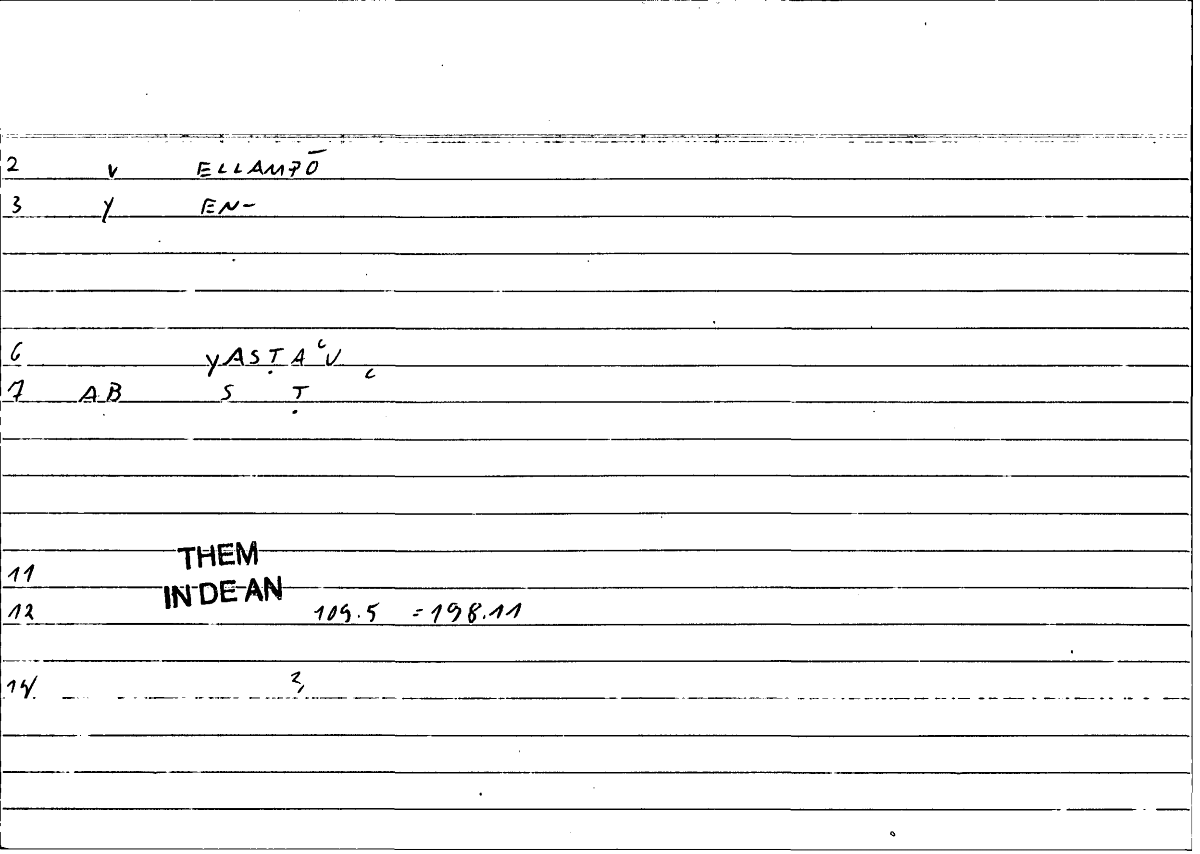 2 v ELLAMPŌ
3 y EN-
6 yAṢTAʿU
7 AB S Ṭ
THEM
11
IN DE AN
12 109.5 =198.11
14